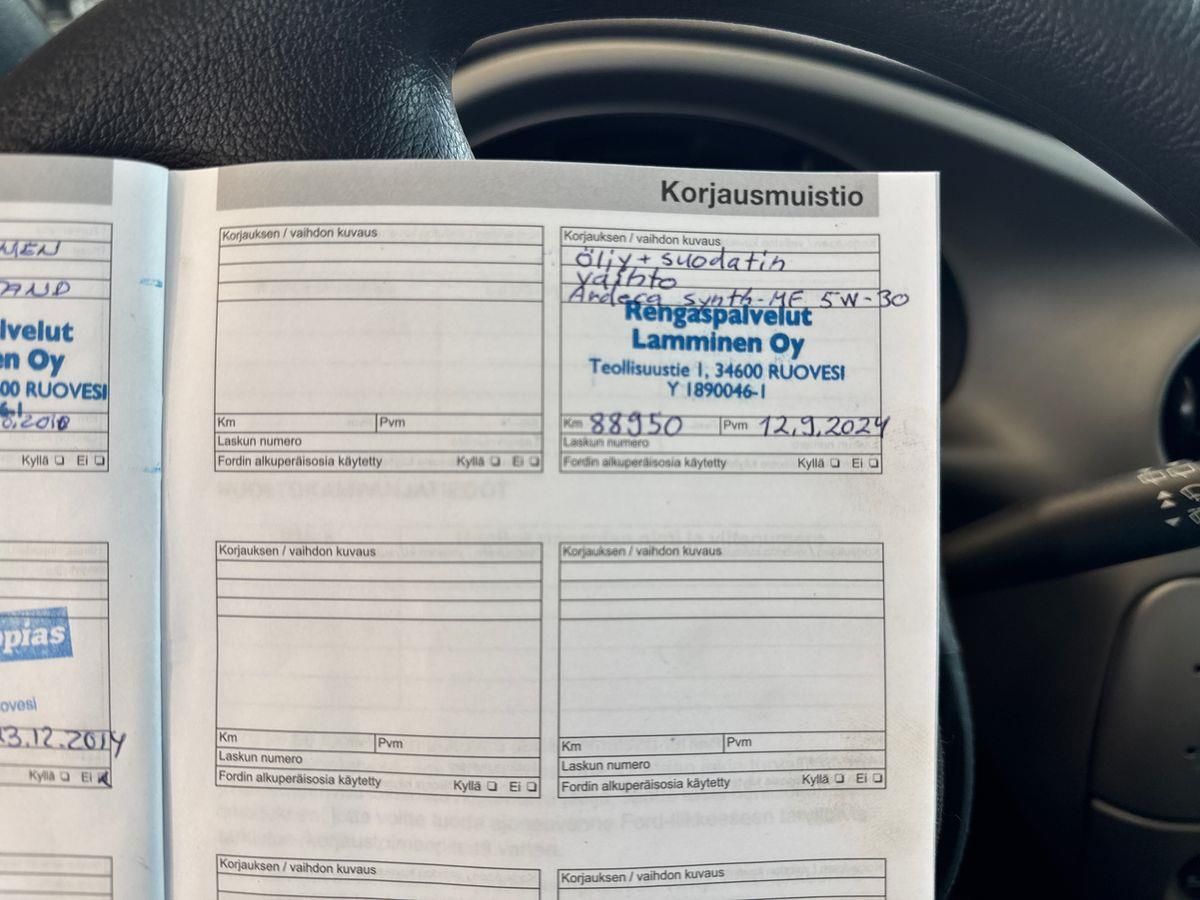 Korjausmuistio
MEN
AND
lvelut
en Oy
00 RUOVESI
6-1
Kyllä Ei
opias
ovesi
13.12.2014
Kyllä Ei
Korjauksen / vaihdon kuvaus
Km Pvm
Laskun numero
Fordin alkuperäisosia käytetty Kyllä Ei
Korjauksen / vaihdon kuvaus
Öljy + suodatin
vaihto
synth-MF 5W-30
Rengaspalvelut
Lamminen Oy
Teollisuustie 1, 34600 RUOVESI
Y 1890046-1
Km 88950 Pvm 12.9.2024
Laskun numero
Fordin alkuperäisosia käytetty Kyllä Ei
Korjauksen / vaihdon kuvaus
Km Pvm
Laskun numero
Fordin alkuperäisosia käytetty Kyllä Ei
Korjauksen / vaihdon kuvaus
Km Pvm
Laskun numero
Fordin alkuperäisosia käytetty Kyllä Ei
Korjauksen / vaihdon kuvaus
Korjauksen / vaihdon kuvaus